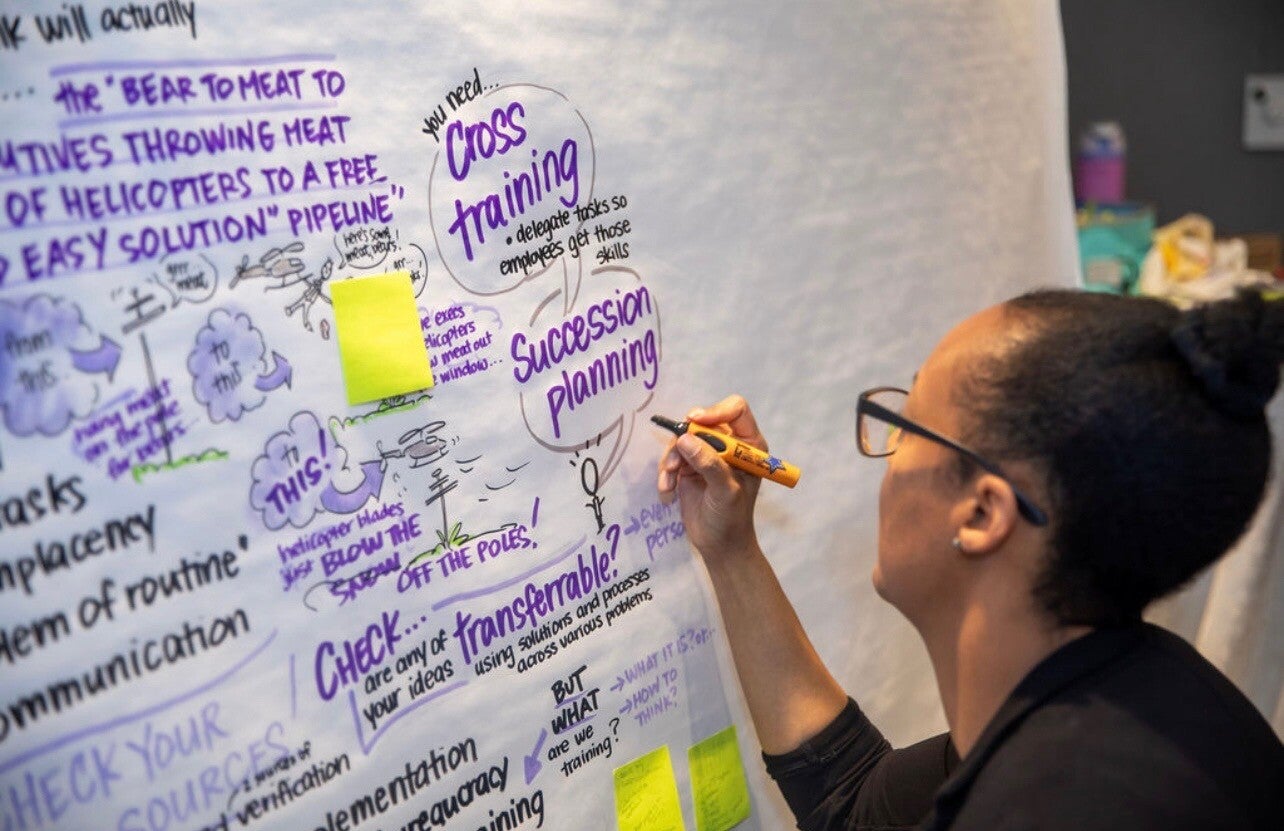 will actually
... the "BEAR TO MEAT TO
THROWING MEAT
OF HELICOPTERS TO A FREE
EASY SOLUTION" PIPELINE"
you need...
Cross
training
• delegate tasks so
employees get those
skills
Succession
planning
grrr
meat,
here's some
meat, bears!
from
this
to
this
hang meat
on the pole
for bears
execs
meat out
window...
to
THIS!
helicopter blades
just BLOW THE
SNOW
OFF THE POLES!
tasks
of routine"
CHECK...
are any of
your ideas
transferrable?
using solutions and processes
across various problems
BUT
WHAT
are we
training?
→ WHAT IT IS? or..
→ HOW TO
THINK?
CHECK YOUR
SOURCES
verification